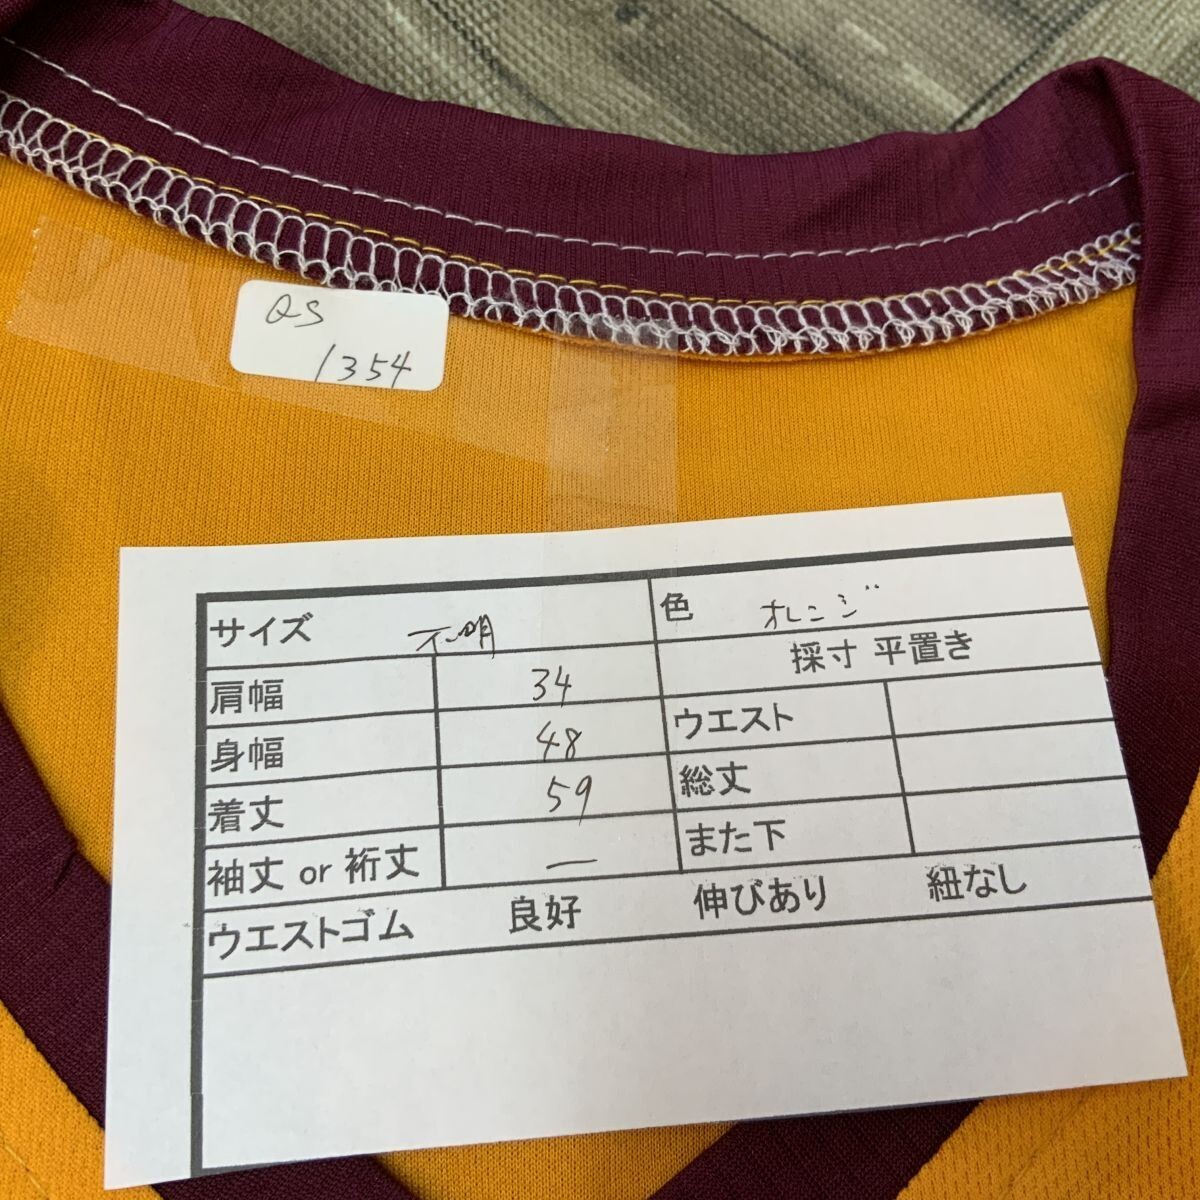 QS
1354
サイズ 不明 色 オレンジ
肩幅 34 採寸 平置き
身幅 48 ウエスト
着丈 59 総丈
袖丈 or 裄丈 — また下
ウエストゴム 良好 伸びあり 紐なし